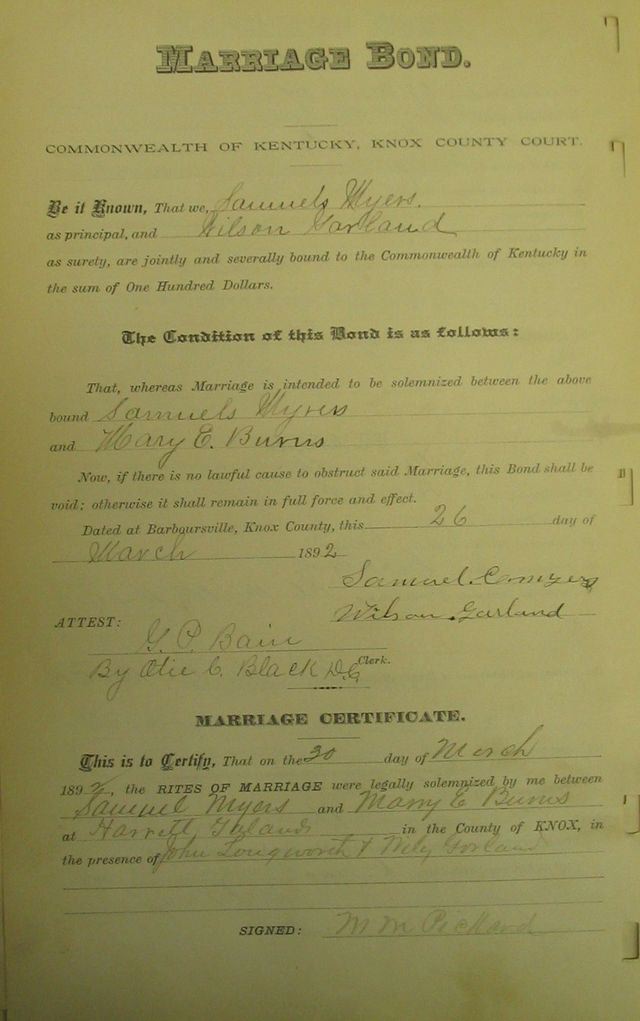 MARRIAGE BOND.
COMMONWEALTH OF KENTUCKY, KNOX COUNTY COURT.
Be it Known, That we, Samuels Myers.
as principal, and Wilson Garland
as surety, are jointly and severally bound to the Commonwealth of Kentucky in
the sum of One Hundred Dollars.
The Condition of this Bond is as follows:
That, whereas Marriage is intended to be solemnized between the above
bound Samuels Myres
and Mary E. Burns
Now, if there is no lawful cause to obstruct said Marriage, this Bond shall be
void; otherwise it shall remain in full force and effect.
Dated at Barboursville, Knox County, this 26 day of
March 1892
Samuel
Wilson Garland
ATTEST:
G. P. Bain
By Otie C. Black D.C. Clerk.
MARRIAGE CERTIFICATE.
This is to Certify, That on the 30 day of March
1892, the RITES OF MARRIAGE were legally solemnized by me between
Samuel Myers and Marry E Burns
at in the County of KNOX, in
the presence of John Longworth & Garland
SIGNED: M M Pickard